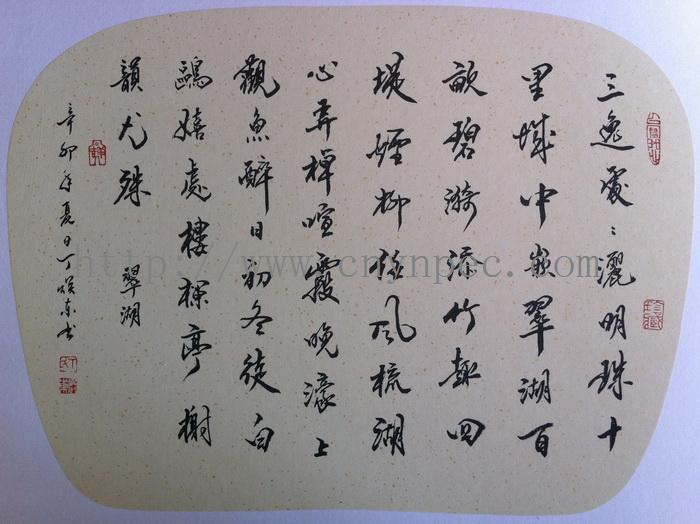 三迤處〻灑明珠十
里城中嵌翠湖百
畝碧漪添竹趣四
堤煙柳任風梳湖
心弄棹喧霞晚濠上
觀魚醉日初冬徙白
鷗嬉處樓檯亭榭
韻尤殊 翠湖
辛卯年夏日丁咲东书
http://www.cnynpcc.com